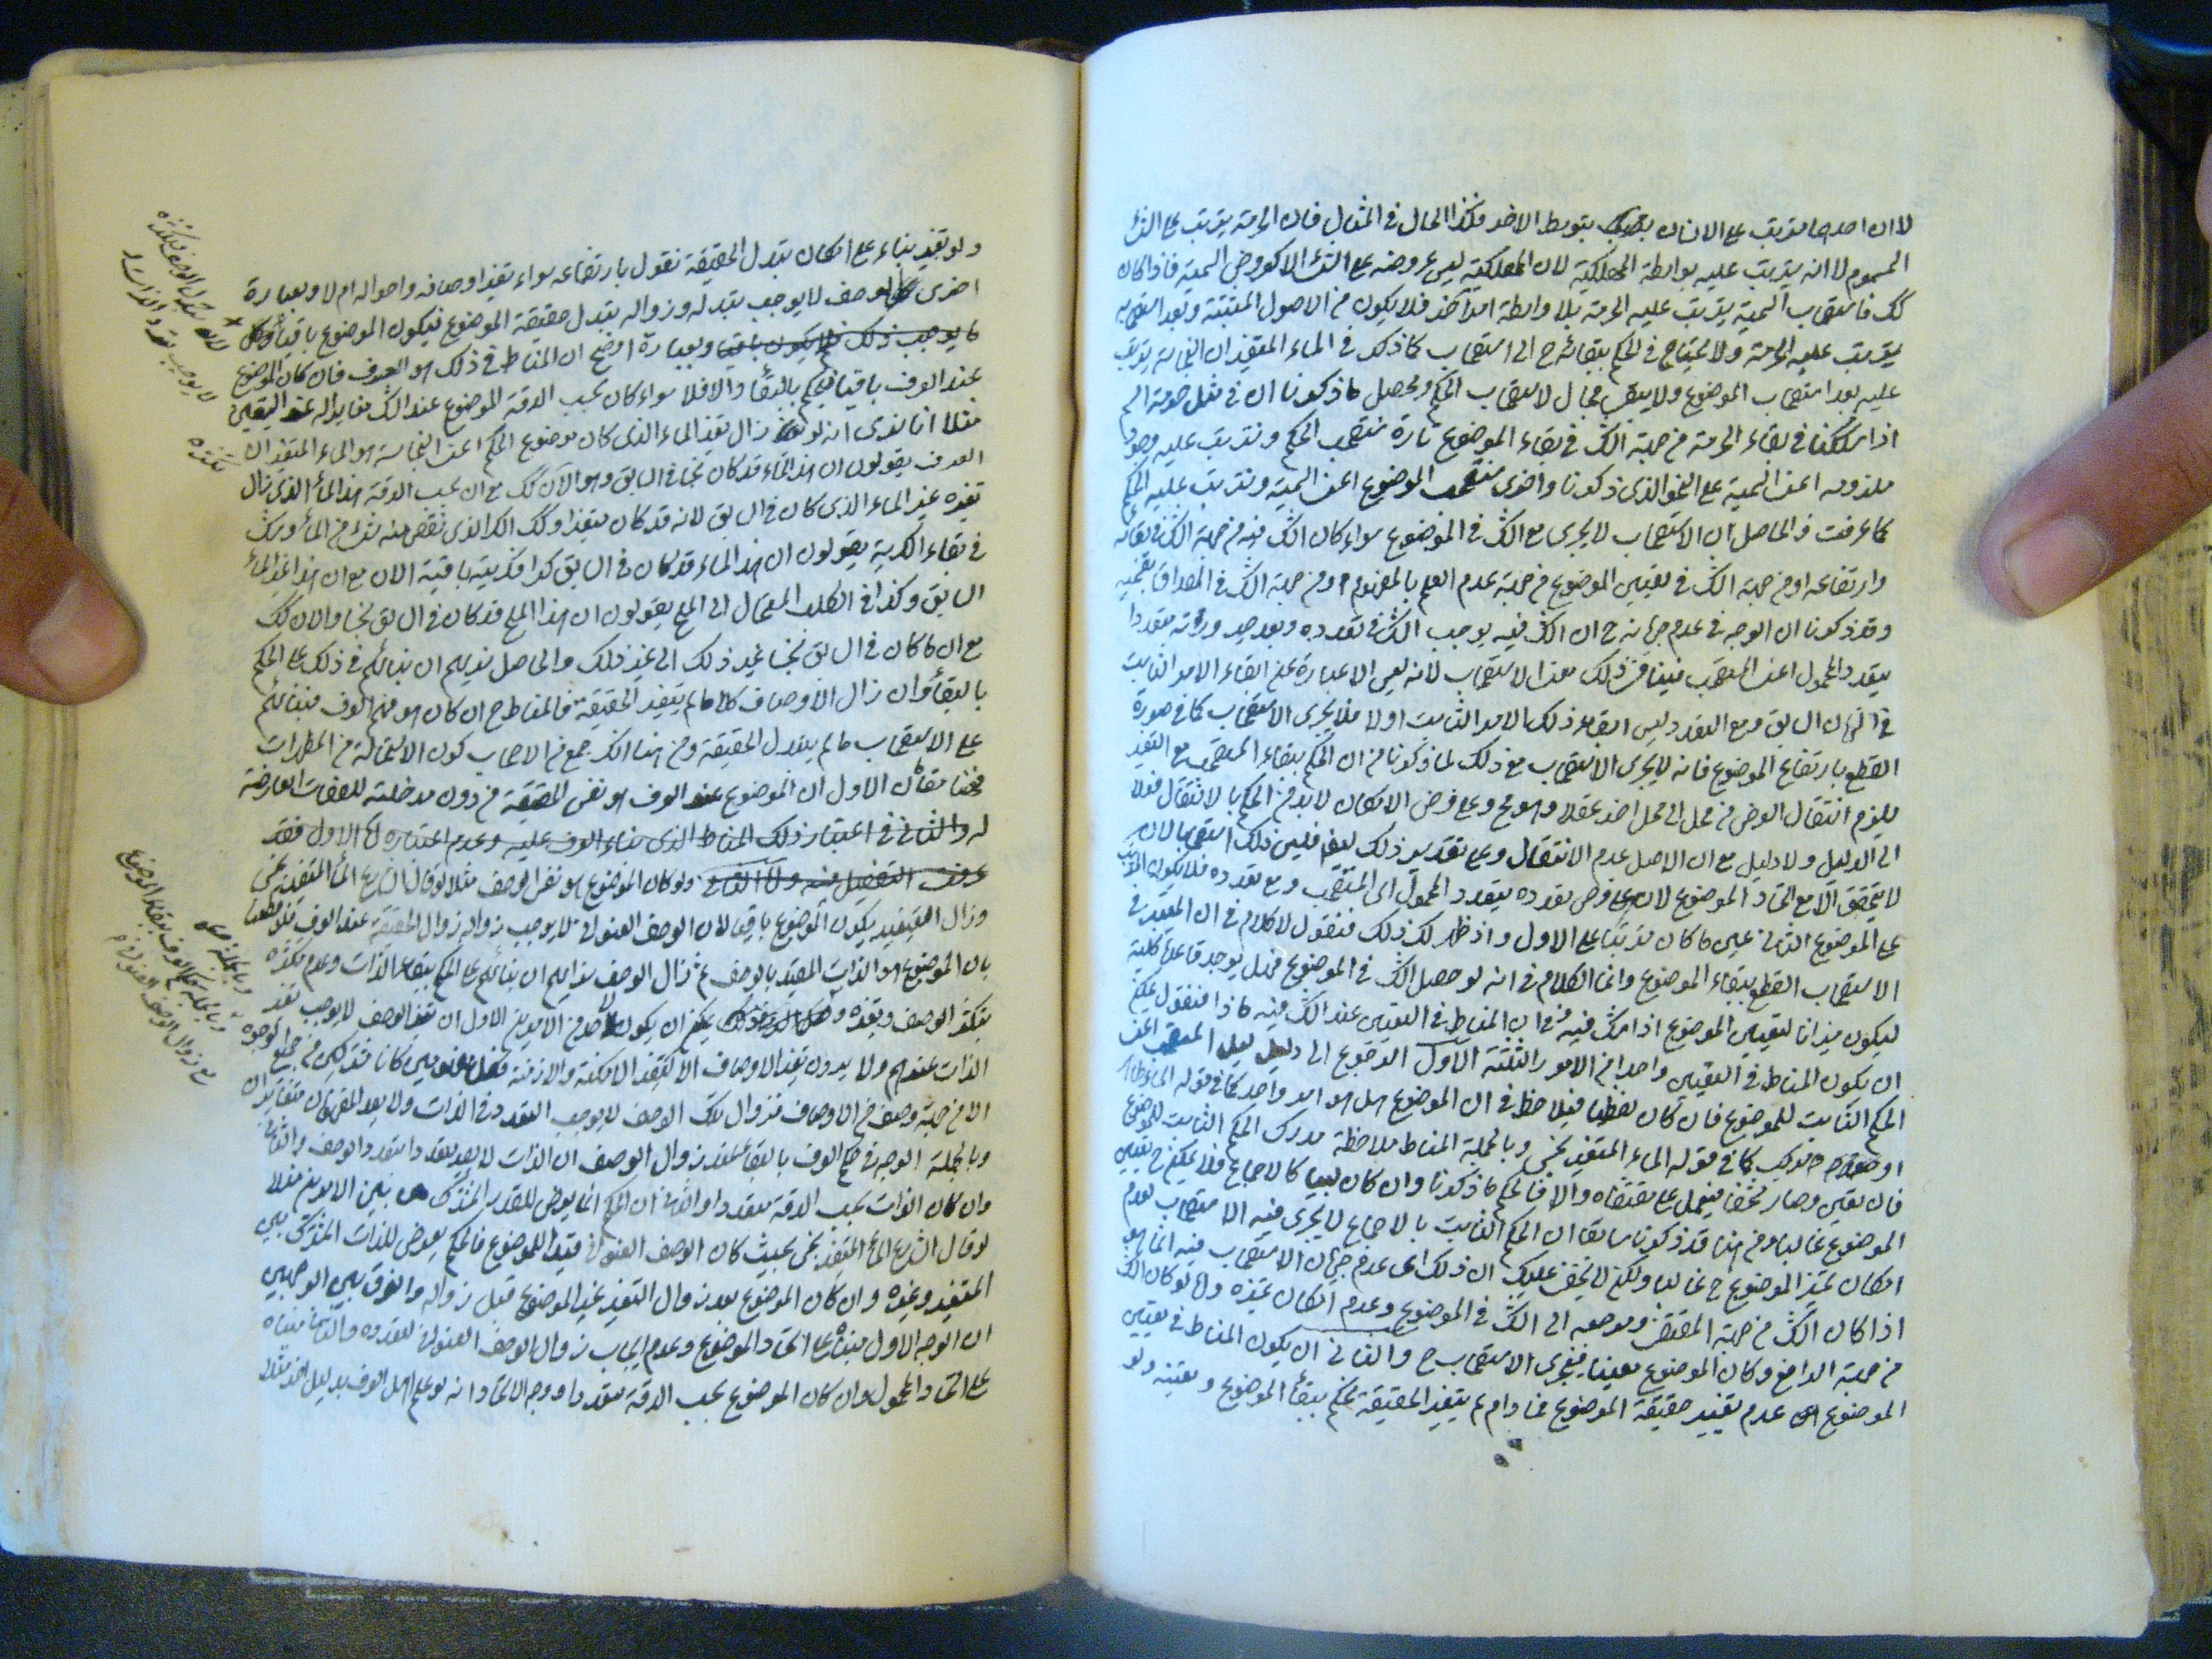 لا ان احدهما يترتب على الانسان بتوسط الاخر فكذا الحال في المثال فان الحرمة يترتب على الشئ
المسموم لا انه يترتب عليه بواسطة المهلكية لان المهلكية ليس عروضه على الشئ الا كعروض السمية فاذا كان
كك فاستصحاب السمية يترتب عليه الحرمة بلا واسطة امر آخر فلا يكون من الاصول المثبتة وبعد استصحابه
يترتب عليه الحرمة ولا يحتاج في الحكم ببقائه ح الى استصحاب كما ذكر في الماء المتغير ان النجاسة يترتب
عليه بعد استصحاب الموضوع ولا يبقى مجال لاستصحاب الحكم ومحصل ما ذكرنا ان في مثل حرمة السم
اذا شككنا في بقاء الحرمة من جهة الشك في بقاء الموضوع تارة نستصحب الحكم ونترتب عليه وجود
ملزومه اعنى السمية على النحو الذى ذكرنا واخرى نستصحب الموضوع اعنى السمية ونترتب عليه الحكم
كما عرفت والحاصل ان الاستصحاب لا يجرى مع الشك في الموضوع سواء كان الشك فيه من جهة الشك في بقائه
وارتفاعه او من جهة الشك في تعيين الموضوع من جهة عدم العلم بالمفهوم او من جهة الشك في المصداق بقسميه
وقد ذكرنا ان الوجه في عدم جريانه ح ان الشك فيه يوجب الشك في تعدده وبعد صيرورته متعددا
يتعدد المحمول اعنى المستصحب فينافى ذلك معنى الاستصحاب لانه ليس الا عبارة عن ابقاء الامر الثابت
في الزمان السابق ومع التعدد ليس ابقاء ذلك الامر الثابت اولا فلا يجرى الاستصحاب كما في صورة
القطع بارتفاع الموضوع فانه لا يجرى الاستصحاب مع ذلك لما ذكرنا من ان الحكم ببقاء المستصحب مع التغير
يلزم انتقال العرض من محل الى محل اخر عقلا وهو مح وعلى فرض الامكان لابد في الحكم بالانتقال
الى الدليل ولا دليل مع ان الاصل عدم الانتقال وعلى تقدير ذلك ايضا فليس ذلك استصحابا لانه
لا يتحقق الا مع اتحاد الموضوع لان على فرض تعدده يتعدد المحمول اى المستصحب ومع تعدده فلا يكون المترتب
على الموضوع الثانى عين ما كان مترتبا على الاول واذ ظهر لك ذلك فنقول لا كلام في ان المعتبر في
الاستصحاب القطع ببقاء الموضوع وانما الكلام في انه لو حصل الشك في الموضوع فهل يوجد قاعدة كلية
ليكون ميزانا لتعيين الموضوع اذا شك فيه في ان المناط في التعيين عند الشك فيه ماذا فنقول يمكن
ان يكون المناط في التعيين واحدا من الامور الثلثة الاول الرجوع الى دليل المستصحب اعنى
الحكم الثابت للموضوع فان كان لفظيا فيلاحظ في ان الموضوع هل هو امر واحد كما في قوله الماء طاهر
او مركب كما في قوله الماء المتغير نجس وبالجملة المناط ملاحظة مدرك الحكم الثابت للموضوع
فان تعين وصار مشخصا فيعمل على مقتضاه والا فالحكم ما ذكرنا وان كان لبيا كالاجماع فلا يمكن ح تعيين
الموضوع غالبا ومن هنا قد ذكرنا سابقا ان الحكم الثابت بالاجماع لا يجرى فيه الاستصحاب لعدم
امكان تميز الموضوع ح غالبا ولكن لا يخفى عليك ان ذلك اى عدم جريان الاستصحاب فيه انما هو
اذا كان الشك من جهة المقتضى ومرجعه الى الشك في الموضوع وعدم امكان تميزه واما لو كان الشك
من جهة الرافع وكان الموضوع معينا فيجرى الاستصحاب ح والثانى ان يكون المناط في تعيين
الموضوع عدم تغيير حقيقة الموضوع فما دام لم يتغير الحقيقة نحكم ببقاء الموضوع وتعينه ولو
ولو تغير بناء على امكان تبدل الحقيقة نقول بارتفاعه سواء تغير اوصافه واحواله ام لا وبعبارة
اخرى الوصف لا يوجب تبدله وزواله تبدل حقيقة الموضوع فيكون الموضوع باقيا
ما يوجب ذلك فلا يكون باقيا وبعبارة اوضح ان المناط في ذلك هو العرف فان كان الموضوع
عند العرف باقيا فيحكم بالبقاء والا فلا سواء كان بحسب الدقة الموضوع عند الشك مغايرا له عند اليقين
مثلا انا نرى انه لو زال تغير الماء الذى كان موضوع الحكم اعنى النجاسة هو الماء المتغير ان
العرف يقولون ان هذا الماء قد كان نجسا في السابق وهو الآن كك مع ان بحسب الدقة هذا الماء الذى زال
تغيره غير الماء الذى كان في السابق لانه قد كان متغيرا وكك الكر الذى نقص منه شئ من الماء وشك
في بقاء الكرية يقولون ان هذا الماء قد كان في السابق كرا فكريته باقية الان مع ان هذا غير الماء
السابق وكذا في الكلب المستحال الى الملح يقولون ان هذا الملح قد كان في السابق نجسا والان كك
مع ان ما كان في السابق نجسا غير ذلك الى غير ذلك والحاصل نريهم ان بنائهم في ذلك على الحكم
بالبقاء وان زال الاوصاف كلا ما لم يتغير الحقيقة فالمناط ح ان كان هو فهم العرف فبنائهم
على الاستصحاب ما لم يتبدل الحقيقة ومن هنا انكر جمع من الاصحاب كون الاستحالة من المطهرات
فهنا مقامان الاول ان الموضوع عند العرف هو نفس الحقيقة من دون مدخلية للصفات العارضة
له والثانى في اعتبار ذلك المناط الذى بناء العرف عليه وعدم اعتباره اما الاول فقد
عرفت التفصيل فيه واما الثانى ولو كان الموضوع هو نفس الوصف مثلا لو قال الشارع الماء المتغير نجس
وزال التغيير يكون الموضوع باقيا لان الوصف العنوانى لا يوجب زواله زوال الحقيقة عند العرف
بان الموضوع هو الذات المقيد بالوصف ثم زال الوصف نريهم ان بنائهم على الحكم ببقاء الذات وعدم تكثره
بتكثر الوصف وتغيره يمكن ان يكون لاحد من الامرين الاول ان تغير الوصف لا يوجب تغير
الذات عندهم ولا يرون تغير الاوصاف الا كتغير الامكنة والازمنة
الا من جهة وصف من الاوصاف فزوال تلك الوصف لا يوجب التعدد في الذات
وبالجملة الوجه في حكم العرف بالبقاء عند زوال الوصف ان الذات لا يعد متعددا بتعدد الوصف
وان كان الذات بحسب الدقة متعددا والثانى ان الحكم انما يعرض للقدر المشترك بين الامرين مثلا
لو قال الشارع الماء المتغير نجس بحيث كان الوصف العنوانى قيدا للموضوع فالحكم يعرض للذات المشترك بين
المتغير وغيره وان كان الموضوع بعد زوال التغير غير الموضوع قبل زواله والفرق بين الوجهين
ان الوجه الاول مبناه على اتحاد الموضوع وعدم ايجاب زوال الوصف العنوانى لتعدده والثانى مبناه
على اتحاد المحمول وان كان الموضوع بحسب الدقة متعددا ووجه الاتحاد انه لو علم اهل العرف بدليل اخر مثلا
لا يوجب تعدد الذات
تكثره
وبالجملة حكم العرف ببقاء الموضوع
مع زوال الوصف العنوانى